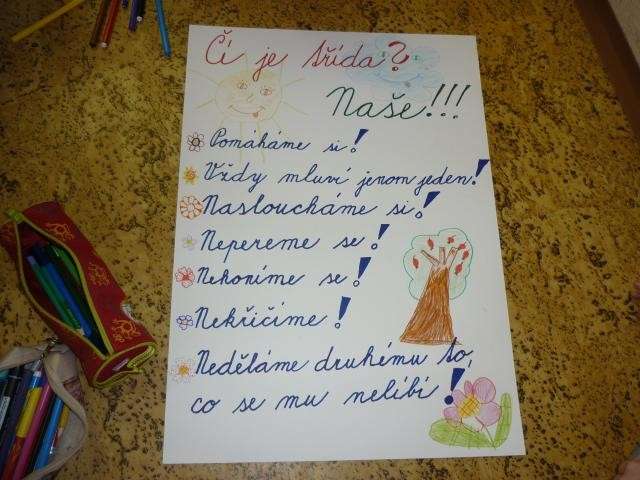 Čí je třída?
Naše!!!
Pomáháme si!
Vždy mluví jenom jeden!
Nasloucháme si!
Nepereme se!
Nehoníme se!
Nekřičíme!
Neděláme druhému to,
co se mu nelíbí!